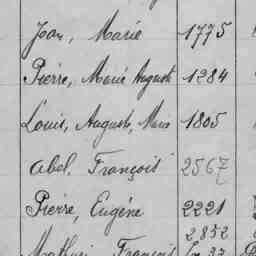 Jean, Marie 1775
Pierre, Marie Auguste 1284
Louis, Auguste, Marie 1805
Abel, François 2567
Pierre, Eugène 2221
2852
Mathurin François